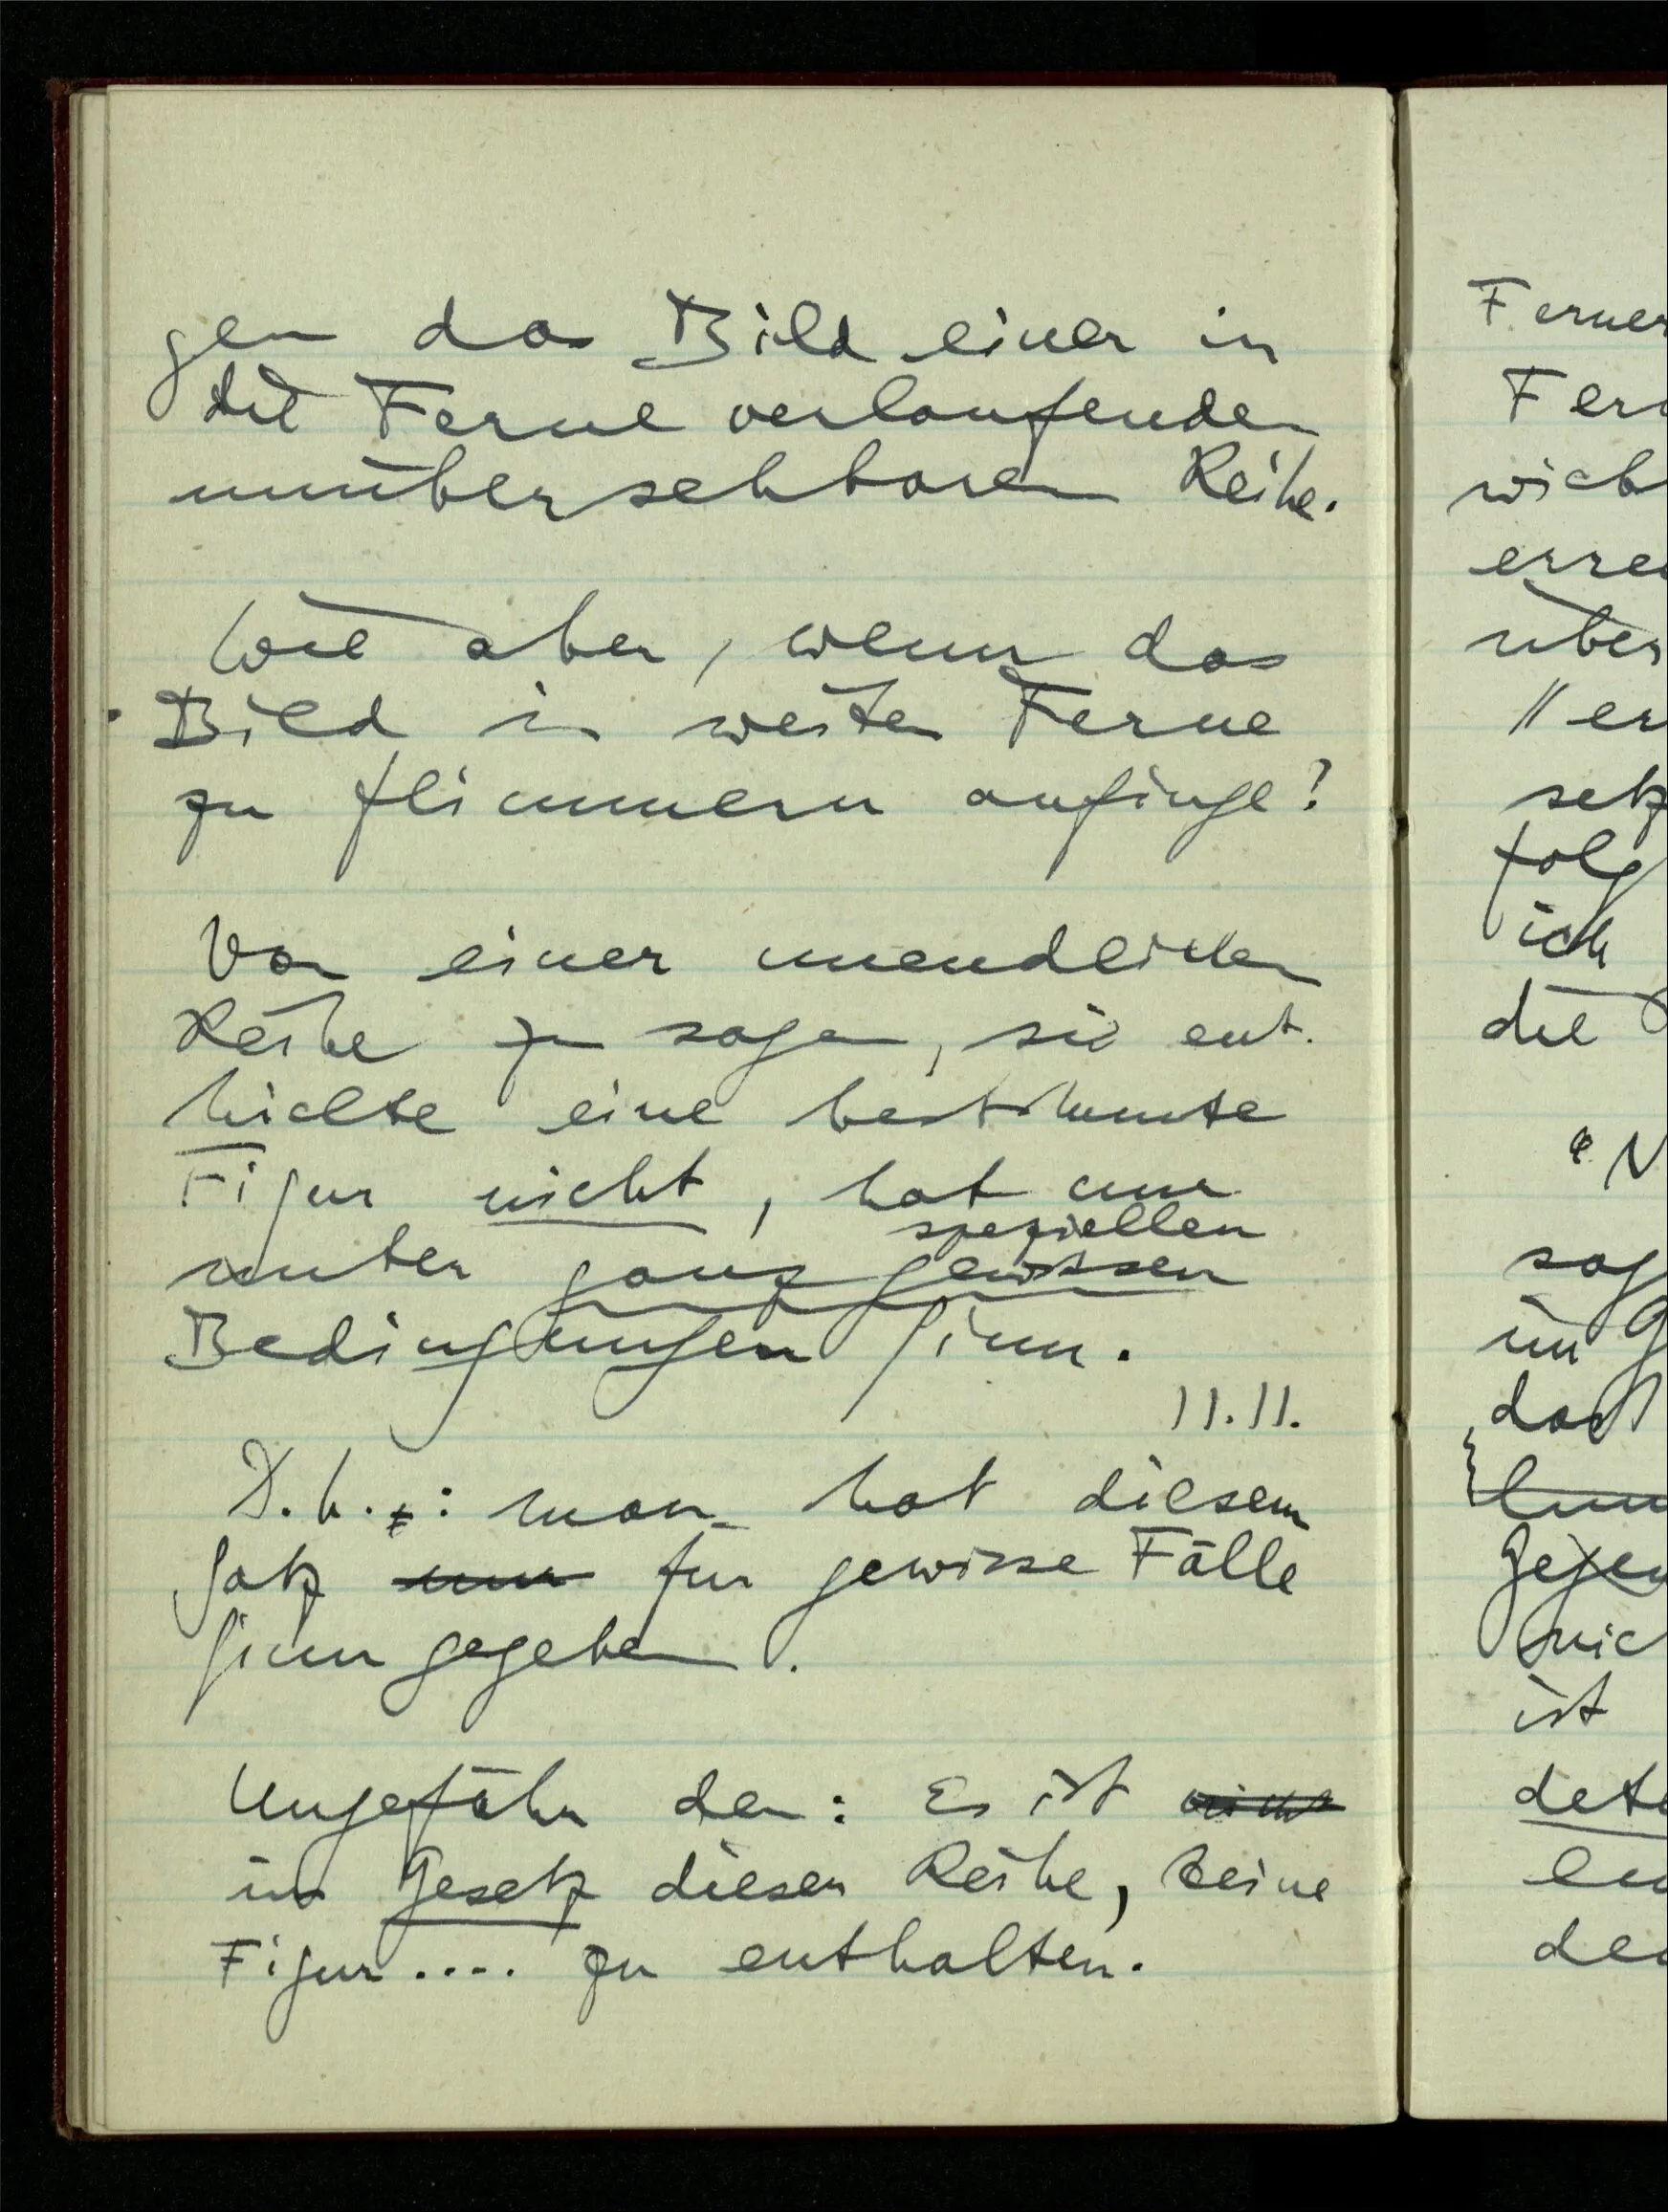 gen das Bild einer in
die Ferne verlaufenden
unübersehbaren Reihe.
Wie aber, wenn das
Bild in weiter Ferne
zu flimmern anfinge?
Von einer unendlichen
Reihe zu sagen, sie ent-
hielte eine bestimmte
Figur nicht, hat nur
speziellen
unter ganz gewissen
Bedingungen Sinn.
11.11.
D.h.: man hat diesem
Satz nur für gewisse Fälle
Sinn gegeben.
Ungefähr den: Es ist nicht
im Gesetz dieser Reihe, keine
Figur.... zu enthalten.
Ferner
Fer
wich
erre
über
"er
setz
folg
ich
die
"N
sag
im G
daß
Gegen
nic
ist
dete
den